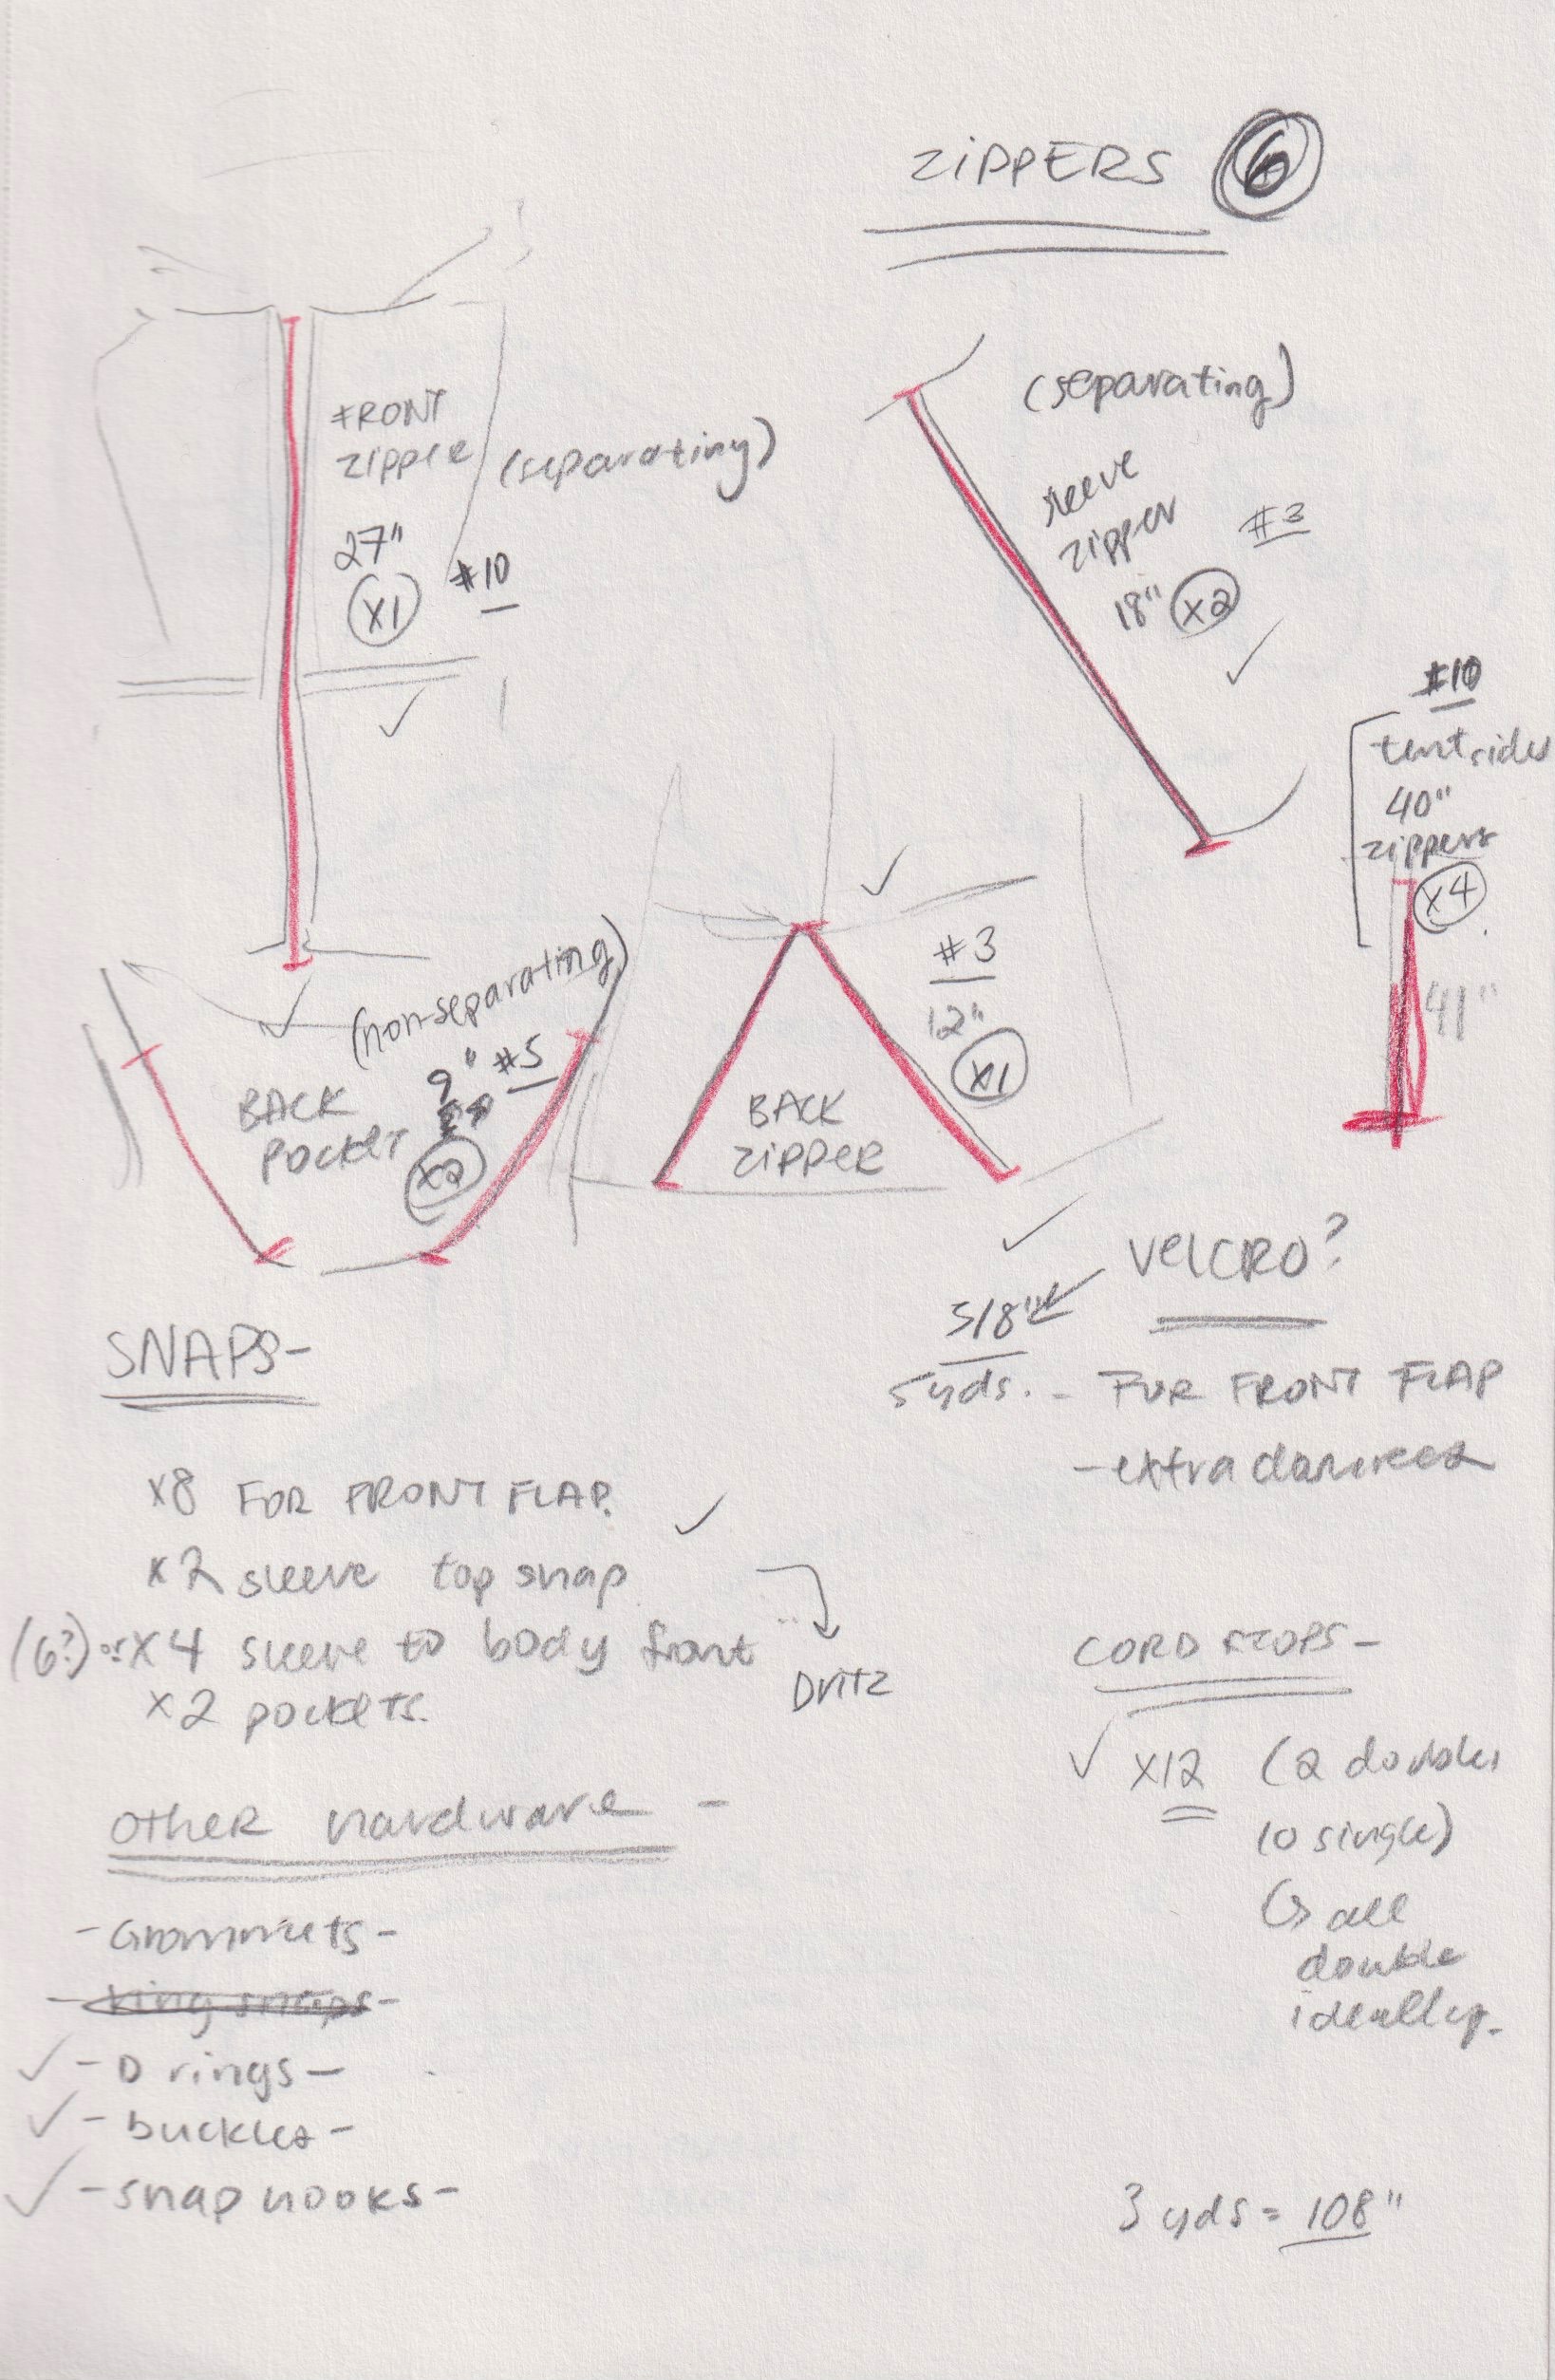 ZIPPERS 6
FRONT
ZIPPER (separating)
27"
X1 #10
(separating)
sleeve
zipper #3
18" X2
#10
tent sides
40"
zippers
X4
41"
(non-separating)
9" #5
BACK
POCKET
X2
#3
12"
X1
BACK
ZIPPER
VELCRO?
5/8"
5 yds. - FOR FRONT FLAP
SNAPS-
X8 FOR FRONT FLAP.
X2 sleeve top snap
(6?) or X4 sleeve to body front
Dritz
X2 pockets.
CORD STOPS-
X12 (2 double,
10 single)
all
double
ideally.
OTHER hardware -
-Grommets-
-ring snaps-
-D rings-
-buckles-
-snap hooks-
3 yds = 108"